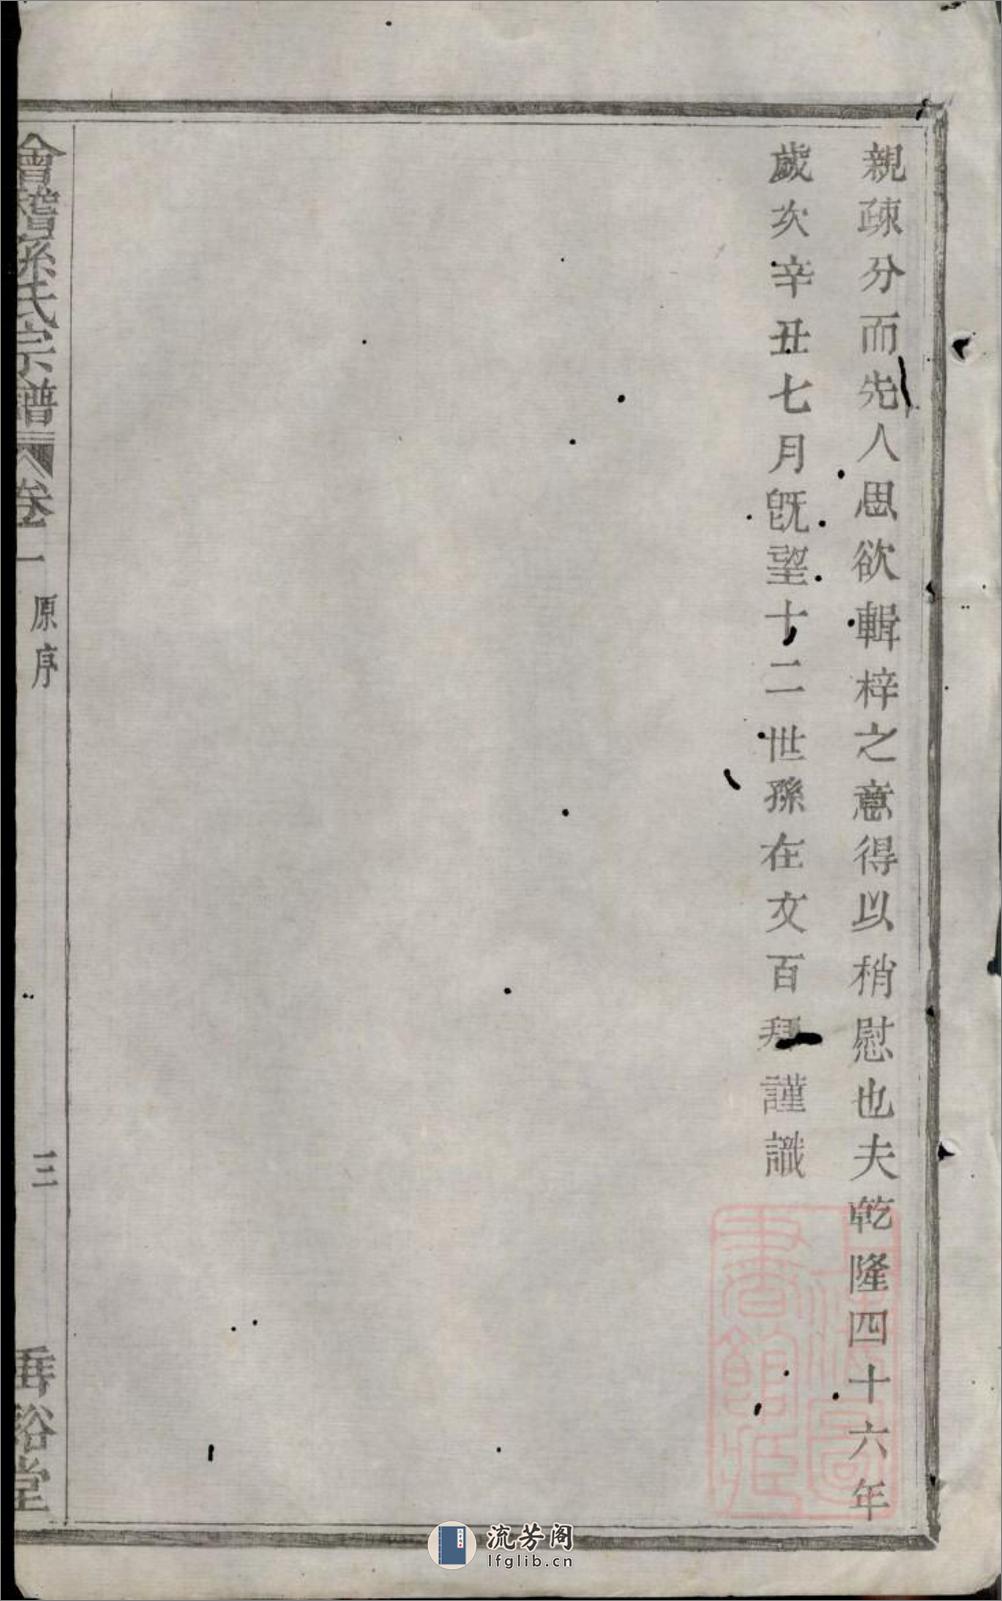 親疎分而先人思欲輯梓之意得以稍慰也夫乾隆四十六年
歲次辛丑七月旣望十二世孫在文百拜謹識
會稽孫氏宗譜 卷一 原序 三 垂裕堂
流芳阁
lfglib.cn